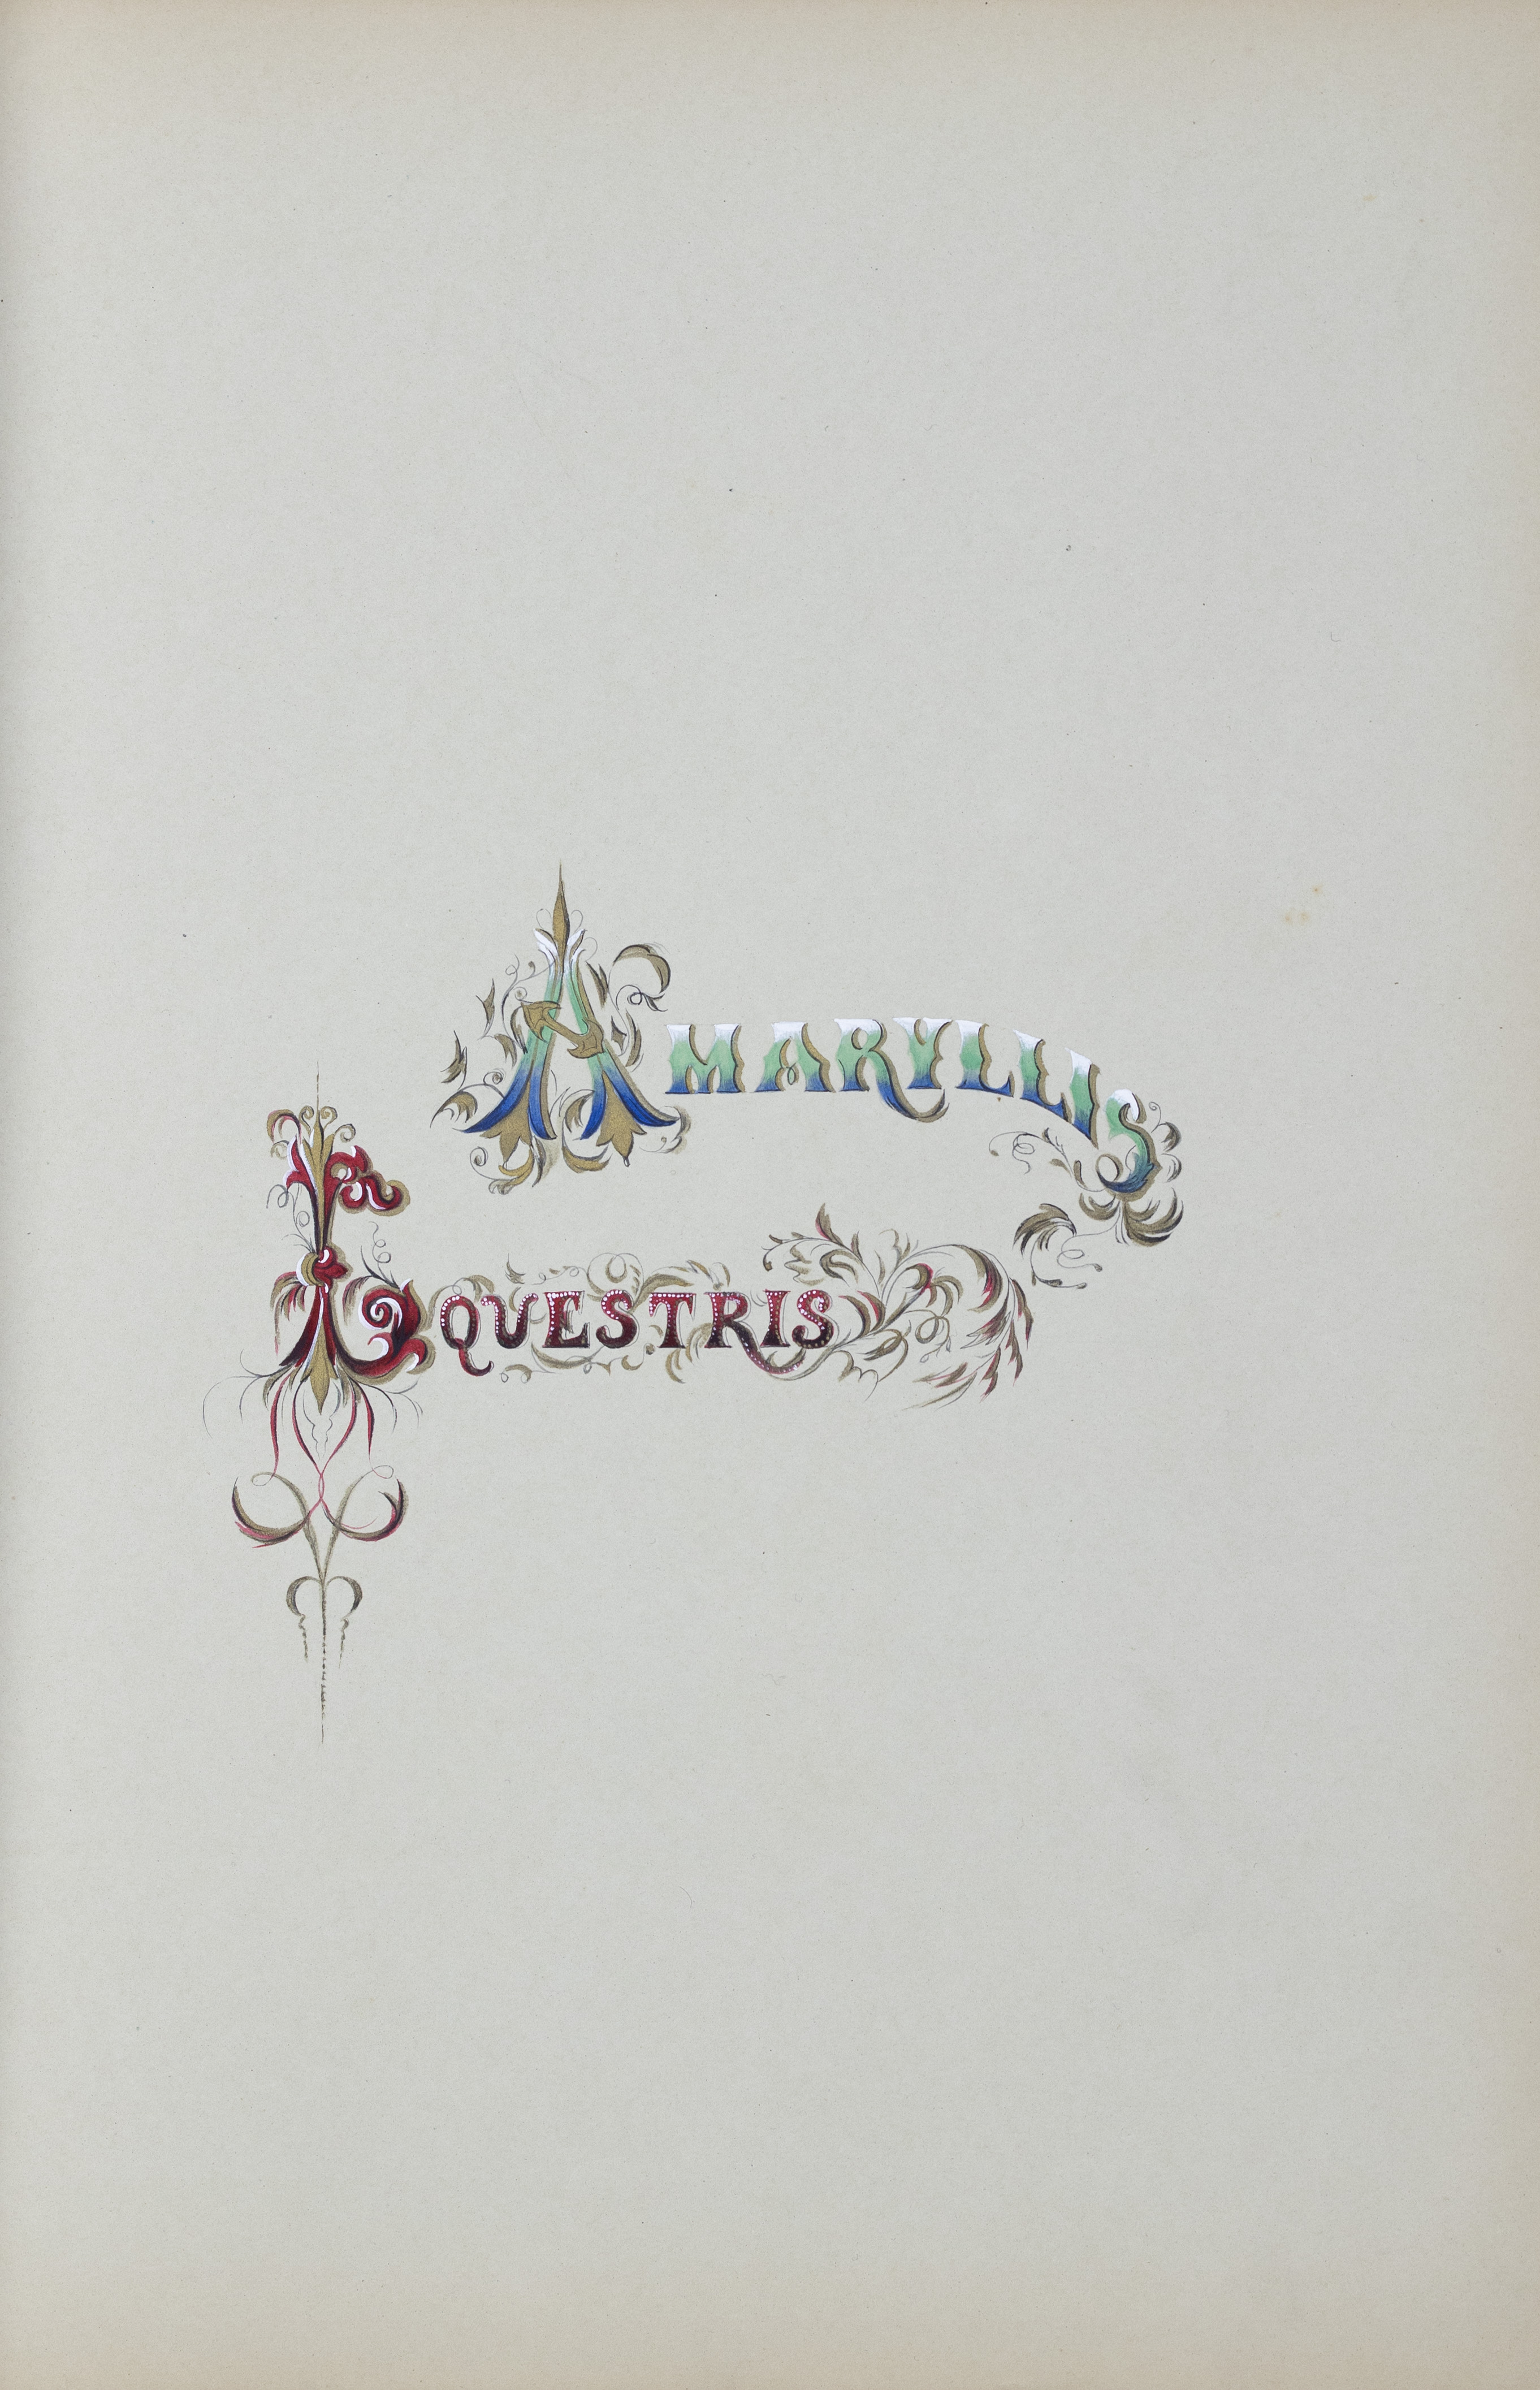 AMARYLLIS
EQUESTRIS